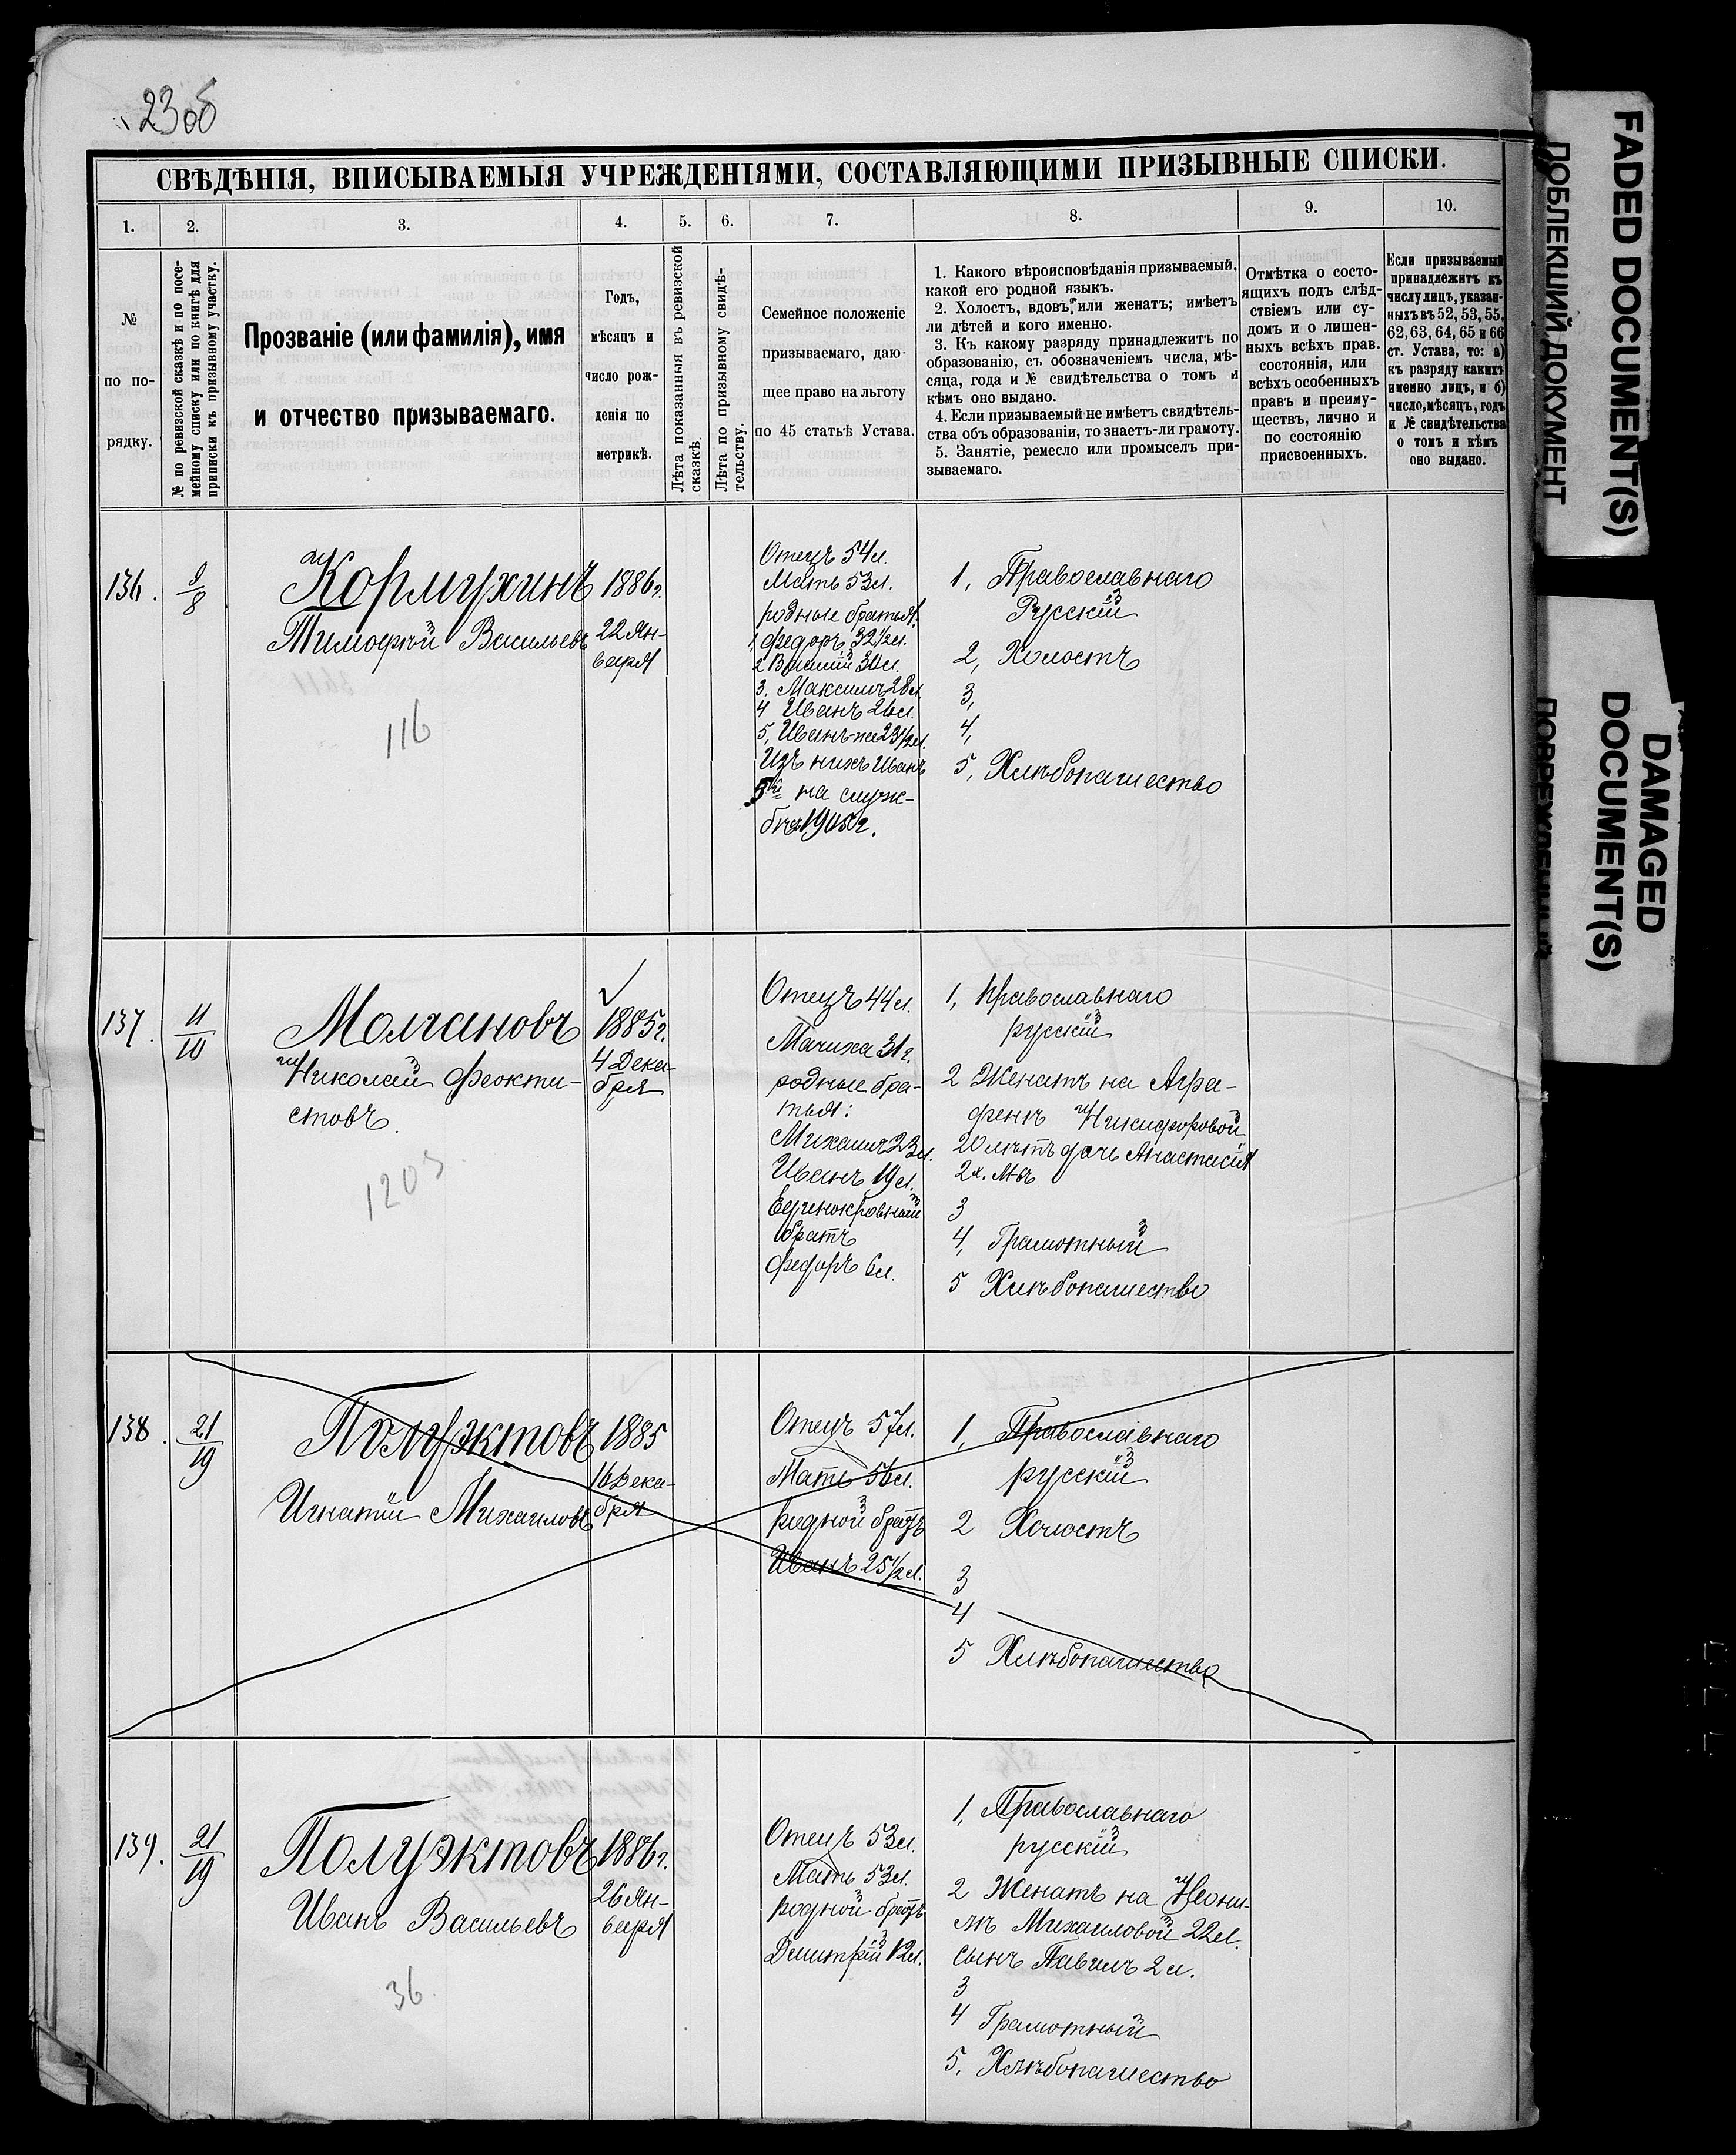 23об
СВѢДѢНІЯ, ВПИСЫВАЕМЫЯ УЧРЕЖДЕНІЯМИ, СОСТАВЛЯЮЩИМИ ПРИЗЫВНЫЕ СПИСКИ.
1.
2.
3.
4.
5.
6.
7.
8.
9.
10.
№
по по-
рядку.
№ по ревизской сказкѣ и по посе-
мейному списку или по книгѣ для
приписки къ призывному участку.
Прозваніе (или фамилія), имя
и отчество призываемаго.
Годъ,
мѣсяцъ и
число рож-
денія по
метрикѣ.
Лѣта показанныя въ ревизской
сказкѣ.
Лѣта по призывному свидѣ-
тельству.
Семейное положеніе
призываемаго, даю-
щее право на льготу
по 45 статьѣ Устава.
1. Какого вѣроисповѣданія призываемый,
какой его родной языкъ.
2. Холостъ, вдовъ, или женатъ; имѣетъ
ли дѣтей и кого именно.
3. Къ какому разряду принадлежитъ по
образованію, съ обозначеніемъ числа, мѣ-
сяца, года и № свидѣтельства о томъ и
кѣмъ оно выдано.
4. Если призываемый не имѣетъ свидѣтель-
ства объ образованіи, то знаетъ-ли грамоту.
5. Занятіе, ремесло или промыселъ при-
зываемаго.
Отмѣтка о состо-
ящихъ подъ слѣд-
ствіемъ или су-
домъ и о лишен-
ныхъ всѣхъ прав.
состоянія, или
всѣхъ особенныхъ
правъ и преиму-
ществъ, лично и
по состоянію
присвоенныхъ.
Если призываемый
принадлежитъ къ
числу лицъ, указан-
ныхъ въ 52, 53, 55,
62, 63, 64, 65 и 66
ст. Устава, то: а)
къ разряду какихъ
именно лицъ, и б)
число, мѣсяцъ, годъ
и № свидѣтельства
о томъ и кѣмъ
оно выдано.
136.
9/8
Кормухинъ
Тимофѣй Васильевъ
116
1886г.
22 Ян-
варя
Отецъ 54л.
Мать 53л.
родные братья:
1, Федоръ 32 1/2л.
2 Василій 30л.
3. Максимъ 28л
4 Иванъ 26л.
5, Иванъ-же 23 1/2л.
Изъ нихъ Иванъ
5й на служ-
бѣ 1905г.
1, Православнаго
Русскій
2, Холостъ
3,
4,
5, Хлѣбопашество
137.
11/10
Молчановъ
Николай Феокти-
стовъ.
1203
1885г.
4 Дека-
бря
Отецъ 44л.
Мачиха 31г.
родные бра-
тья:
Михаилъ 23л.
Иванъ 19л.
Единокровный
братъ
Федоръ 6л.
1, Православнаго
русскій
2 Женатъ на Агра-
фенѣ Никифоровой
20 лѣтъ дочь Анастасія
2х. Мѣ.
3
4, Грамотный
5 Хлѣбопашество
138.
21/19
Полуэктовъ
Игнатій Михаиловъ
1885
16 Дека-
бря
Отецъ 57л.
Мать 56л.
родной братъ
Иванъ 25 1/2л.
1, Православнаго
русскій
2 Холостъ
3
4
5 Хлѣбопашество
139.
21/19
Полуэктовъ
Иванъ Васильевъ
36.
1886г.
26 Ян-
варя
Отецъ 53л.
Мать 53л.
родной братъ
Дмитрій 12л.
1, Православнаго
русскій
2 Женатъ на Неони-
лѣ Михаиловой 22л.
сынъ Павелъ 2л.
3
4 Грамотный
5, Хлѣбопашество
FADED DOCUMENT(S)
ПОБЛЕКШИЙ ДОКУМЕНТ
DAMAGED
DOCUMENT(S)